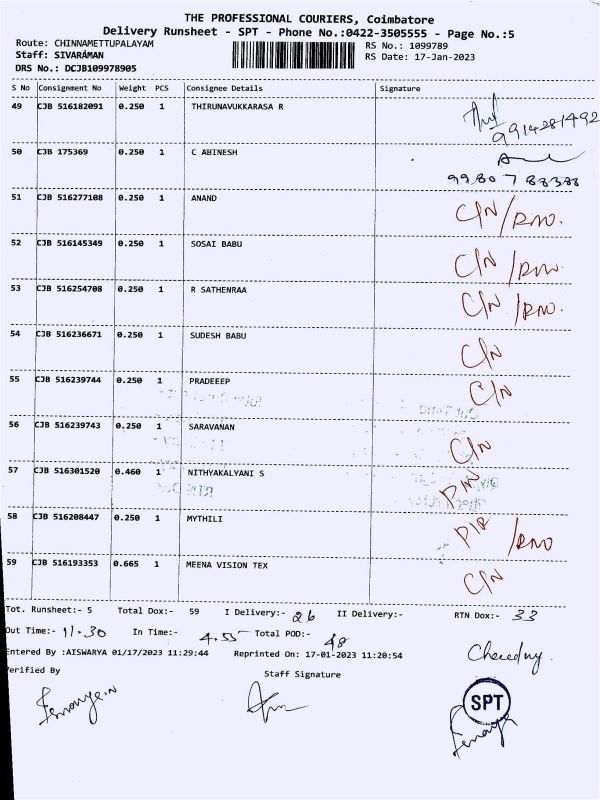 THE PROFESSIONAL COURIERS, Coimbatore
Delivery Runsheet - SPT - Phone No.:0422-3505555 - Page No.:5
Route: CHINNAMETTUPALAYAM RS No.: 1099789
Staff: SIVARAMAN RS Date: 17-Jan-2023
DRS No.: DCJB109978905
S No Consignment No Weight PCS Consignee Details Signature
49 CJB 516182091 0.250 1 THIRUNAVUKKARASA R
9914281492
50 CJB 175369 0.250 1 C ABINESH
9980788388
51 CJB 516277108 0.250 1 ANAND C/N
52 CJB 516145349 0.250 1 SOSAI BABU C/N
53 CJB 516254708 0.250 1 R SATHENRAA C/N
54 CJB 516236671 0.250 1 SUDESH BABU C/N
55 CJB 516239744 0.250 1 PRADEEEP C/N
56 CJB 516239743 0.250 1 SARAVANAN C/N
57 CJB 516301520 0.460 1 NITHYAKALYANI S
58 CJB 516208447 0.250 1 MYTHILI
59 CJB 516193353 0.665 1 MEENA VISION TEX C/N
Tot. Runsheet:- 5 Total Dox:- 59 I Delivery:- 26 II Delivery:- RTN Dox:- 33
Out Time:- 11.30 In Time:- 4.55 Total POD:- 48
Entered By :AISWARYA 01/17/2023 11:29:44 Reprinted On: 17-01-2023 11:20:54
Verified By Staff Signature
SPT